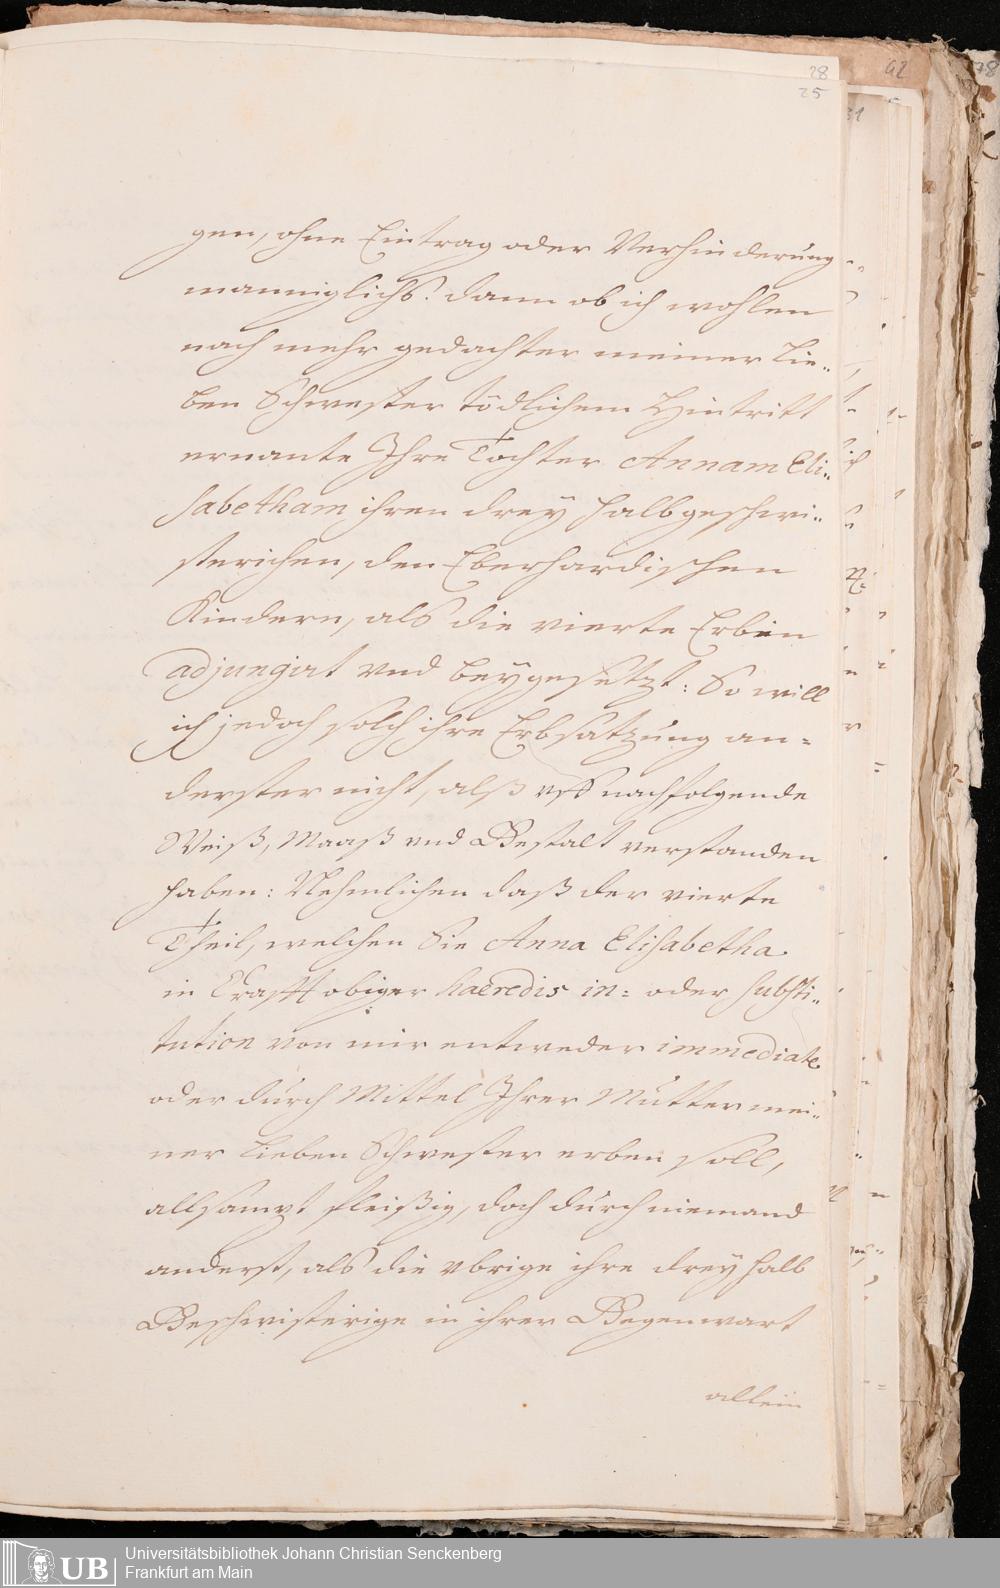 28
25
gen, ohne Eintrag oder Verhinderung
manniglichs. dann ob ich wohlen
nach mehr gedachter meiner Lie„
ben Schwester tödlichem Hintritt
ernante Ihre Tochter Annam Eli„
sabetham ihren drey halbgeschwi„
sterichen, den Eberhardischen
Kindern, als die vierte Erbin
adjungirt vnd beygesetzt: So will
ich jedoch solch ihre Erbsatzung an=
derster nicht, alß vff nachfolgende
Weiß, Maaß vnd Gestalt verstanden
haben: Nehmlichen daß der vierte
Theil, welchen Sie Anna Elisabetha
in Crafft obiger haeredis in= oder substi„
tution von mir entweder immediate
oder durch Mittel Ihrer Mutter mei„
ner Lieben Schwester erben soll,
allsampt fleißig, doch durch niemand
anderst, als die vbrige ihre drey halb
Geschwisterige in ihrer Gegenwart
allein
42
31
UB
Universitätsbibliothek Johann Christian Senckenberg
Frankfurt am Main